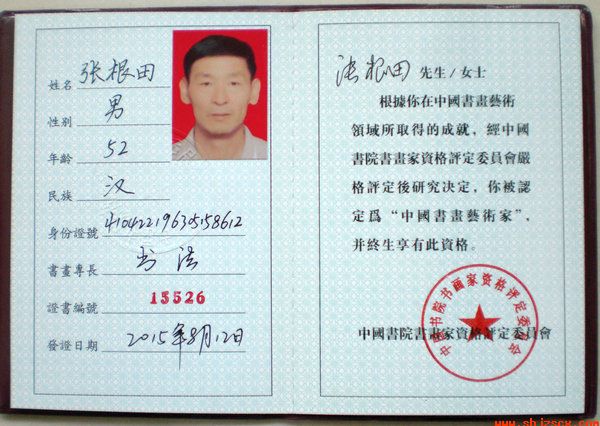 姓名 张根田
性别 男
年齡 52
民族 汉
身份證號 410422196305158612
書畫專長 书法
證書編號 15526
發證日期 2015年8月12日
张根田 先生/女士
根據你在中國書畫藝術
領域所取得的成就，經中國
書院書畫家資格評定委員會嚴
格評定後研究决定，你被認
定爲“中國書畫藝術家”，
并終生享有此資格。
中國書院書畫家資格評定委員會
中国书院书画家资格评定委员会
www.shjzscx.com